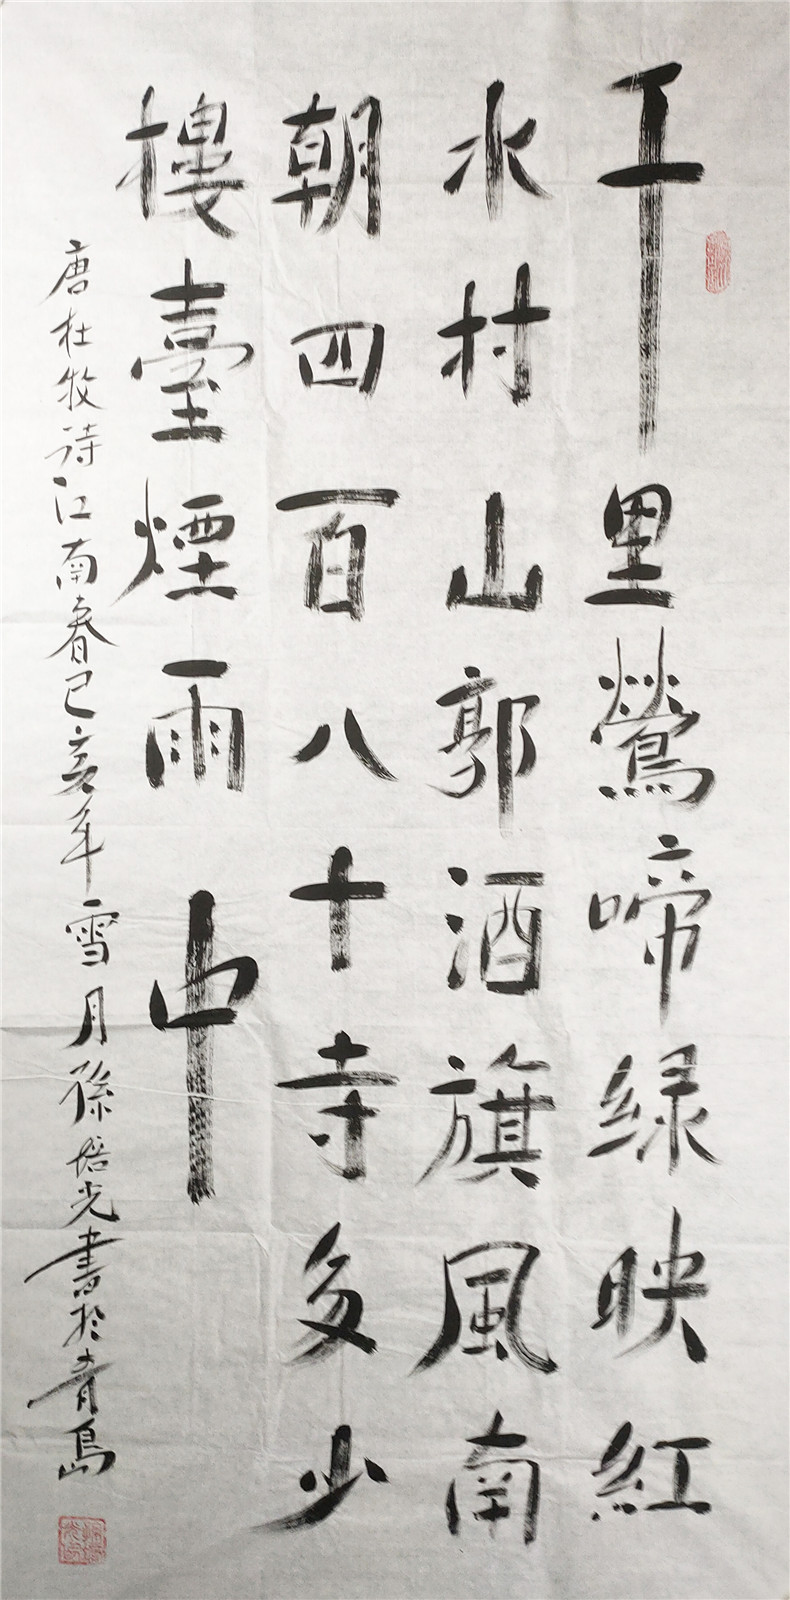 千里鶯啼緑映紅
水村山郭酒旗風南
朝四百八十寺多少
樓臺煙雨中
唐杜牧詩江南春己亥年雪月孫培光書於青島